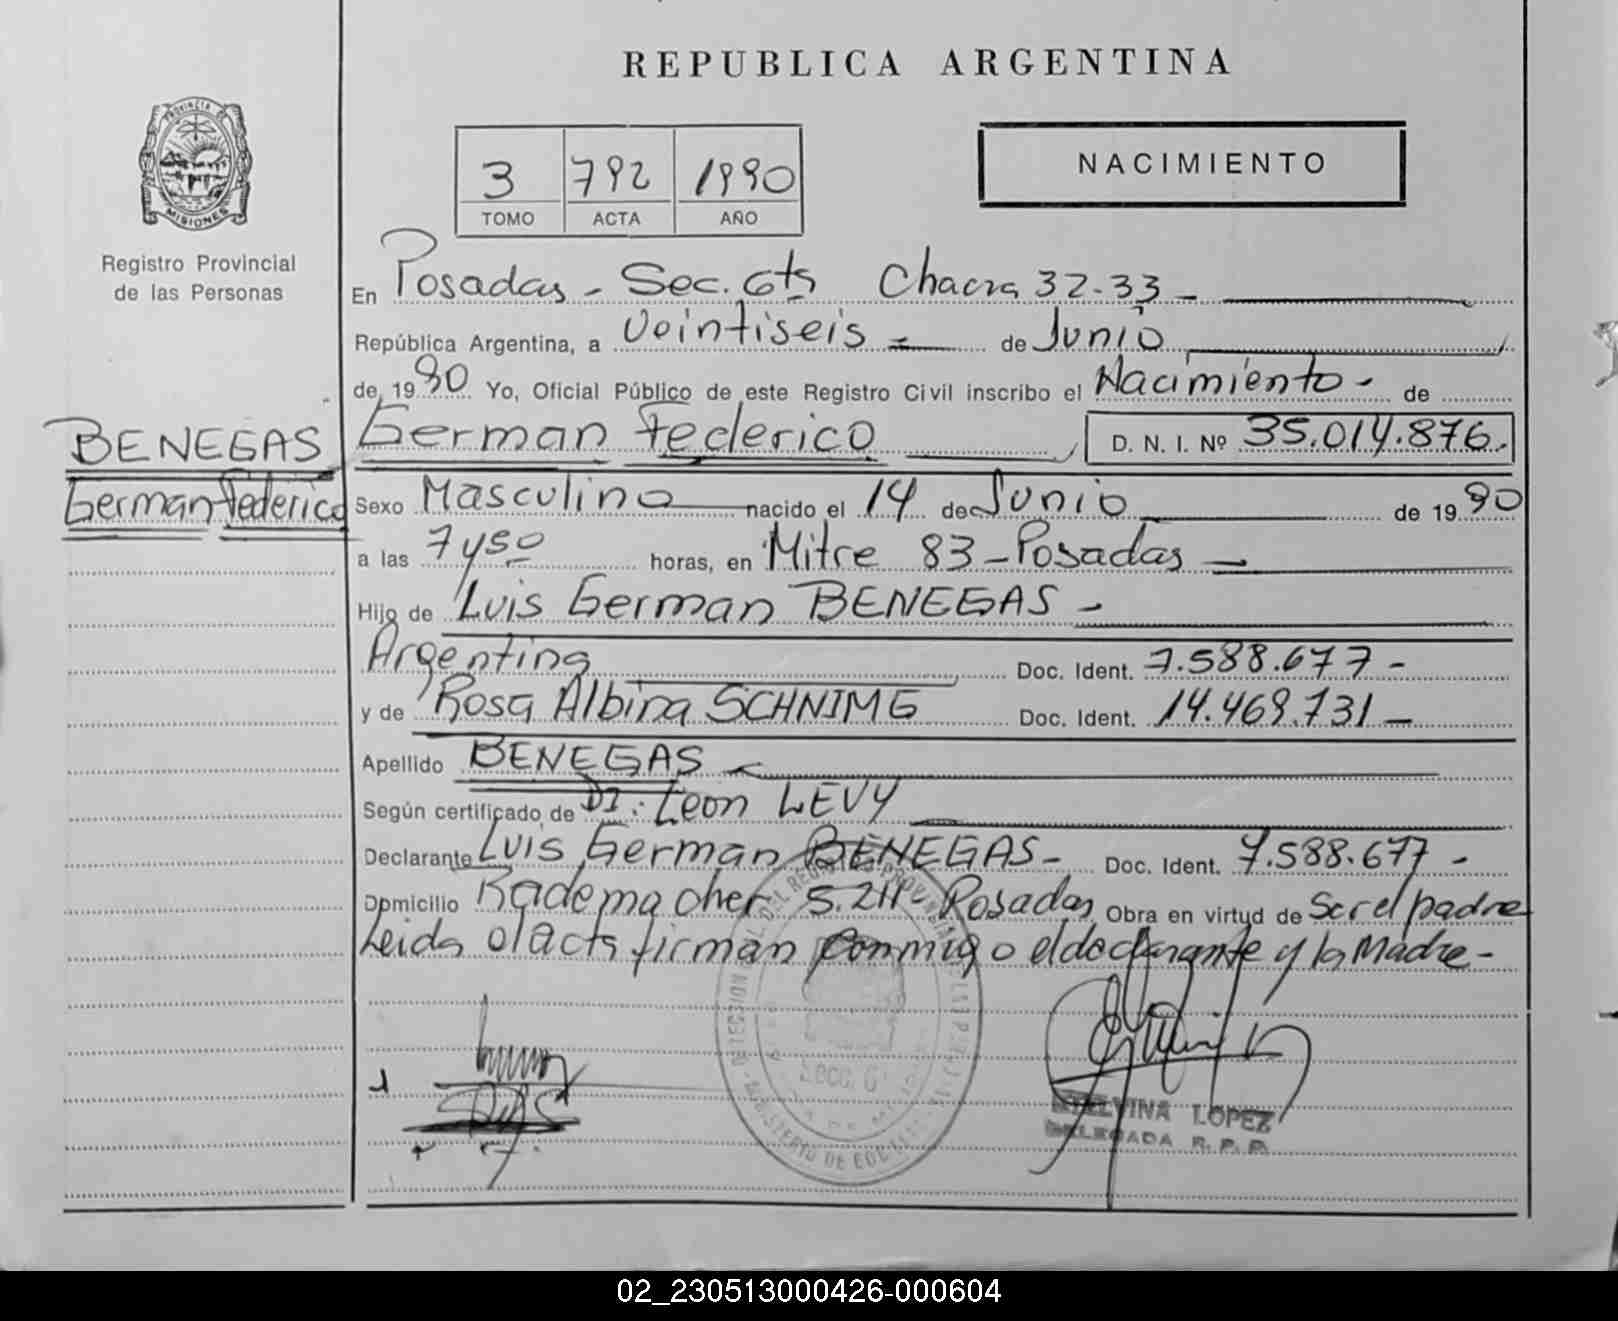 REPUBLICA ARGENTINA
PROVINCIA DE
MISIONES
Registro Provincial
de las Personas
3 792 1990
TOMO ACTA AÑO
NACIMIENTO
En Posadas - Sec. 6ta Chacra 32-33 -
República Argentina, a Veintiseis = de Junio
de 1990 Yo, Oficial Público de este Registro Civil inscribo el Nacimiento - de
BENEGAS
German Federico
German Federico D. N. I. Nº 35.014.876.
Sexo Masculino nacido el 14 de Junio de 1990
a las 7 y 50 horas, en Mitre 83 - Posadas -
Hijo de Luis German BENEGAS -
Argentina Doc. Ident. 7.588.677 -
y de Rosa Albina SCHNIMG Doc. Ident. 14.469.731 -
Apellido BENEGAS -
Según certificado de Dr. Leon LEVY
Declarante Luis German BENEGAS - Doc. Ident. 7.588.677 -
Domicilio Rademacher S. 211 - Posadas Obra en virtud de Ser el padre
Leida el Acta firman conmigo el declarante y la Madre -
DEL REGISTRO PROVINCIAL DE LAS PERSONAS
Secc. 6
MINISTERIO DE
ETELVINA LOPEZ
DELEGADA R. P. P.
02_230513000426-000604